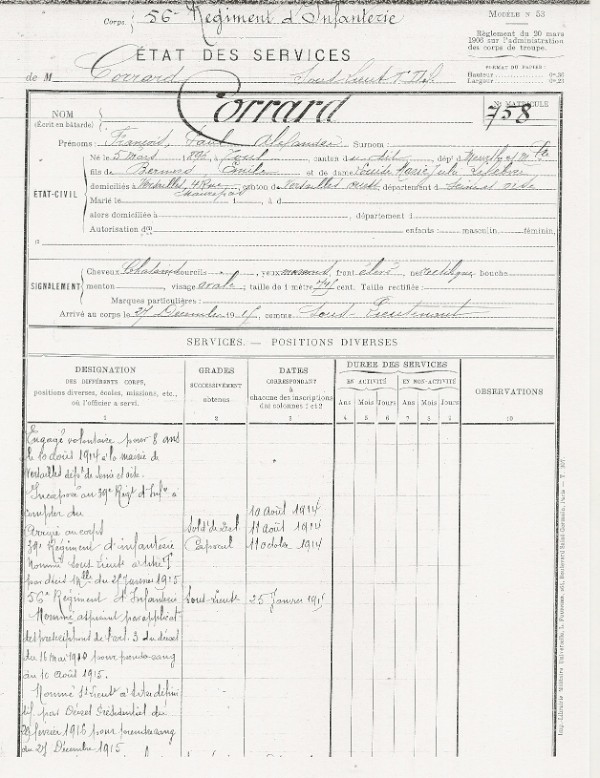 Corps: 56e Régiment d'Infanterie
MODÈLE Nº 33
Règlement du 20 mars
1906 sur l'administration
des corps de troupe.
FORMAT DU PAPIER:
Hauteur 0m36
Largeur 0m21
ÉTAT DES SERVICES
de M Corrard Sous Lieut
Nº MATRICULE
NOM Corrard 758
(Écrit en bâtarde)
Prénoms: François, Paul Surnom:
ÉTAT-CIVIL
Né le 5 mars à Toul, canton dudit, dép't de
fils de Bernard Émile et de dame Louise Marie Lefebvre
domiciliés à Versailles, 4 Rue canton de Versailles ouest, département de Seine et Oise
Marié le à d
alors domiciliée à département d
Autorisation d(1) enfants: masculin, féminin,
SIGNALEMENT
Cheveux Chatains sourcils, yeux marrons, front élevé, nez rectiligne, bouche
menton, visage ovale; taille de 1 mètre cent. Taille rectifiée:
Marques particulières:
Arrivé au corps le 27 Décembre 19, comme Sous-Lieutenant
SERVICES. — POSITIONS DIVERSES
DÉSIGNATION
DES DIFFÉRENTS CORPS,
positions diverses, écoles, missions, etc.,
où l'officier a servi.
1
GRADES
SUCCESSIVEMENT
obtenus
2
DATES
CORRESPONDANT
à
chacune des inscriptions
des colonnes 1 et 2
3
DURÉE DES SERVICES
EN ACTIVITÉ
EN NON-ACTIVITÉ
Ans Mois Jours Ans Mois Jours
4 5 6 7 8 9
OBSERVATIONS
10
Engagé volontaire pour 8 ans
le 10 août 1914 à la mairie de
Versailles dép't de Seine et Oise.
Incorporé au 39e Régt d'Infie à
compter du 10 août 1914
Arrivé au corps Soldt de 2cl 11 août 1914
39e Régiment d'infanterie Caporal 11 octobre 1914
Nommé sous lieut à titre T
par décis Mlle du 25 janvier 1915
56e Régiment d'Infanterie Sous Lieut 25 Janvier 1915
Nommé aspirant par applicat
des prescriptions de l'art. 3 du décret
du 16 mai 1910 pour prendre rang
du 10 Août 1915.
Nommé St Lieut à titre défini
tif par Décret Présidentiel du
février 1916 pour prendre rang
du 27 Décembre 1915